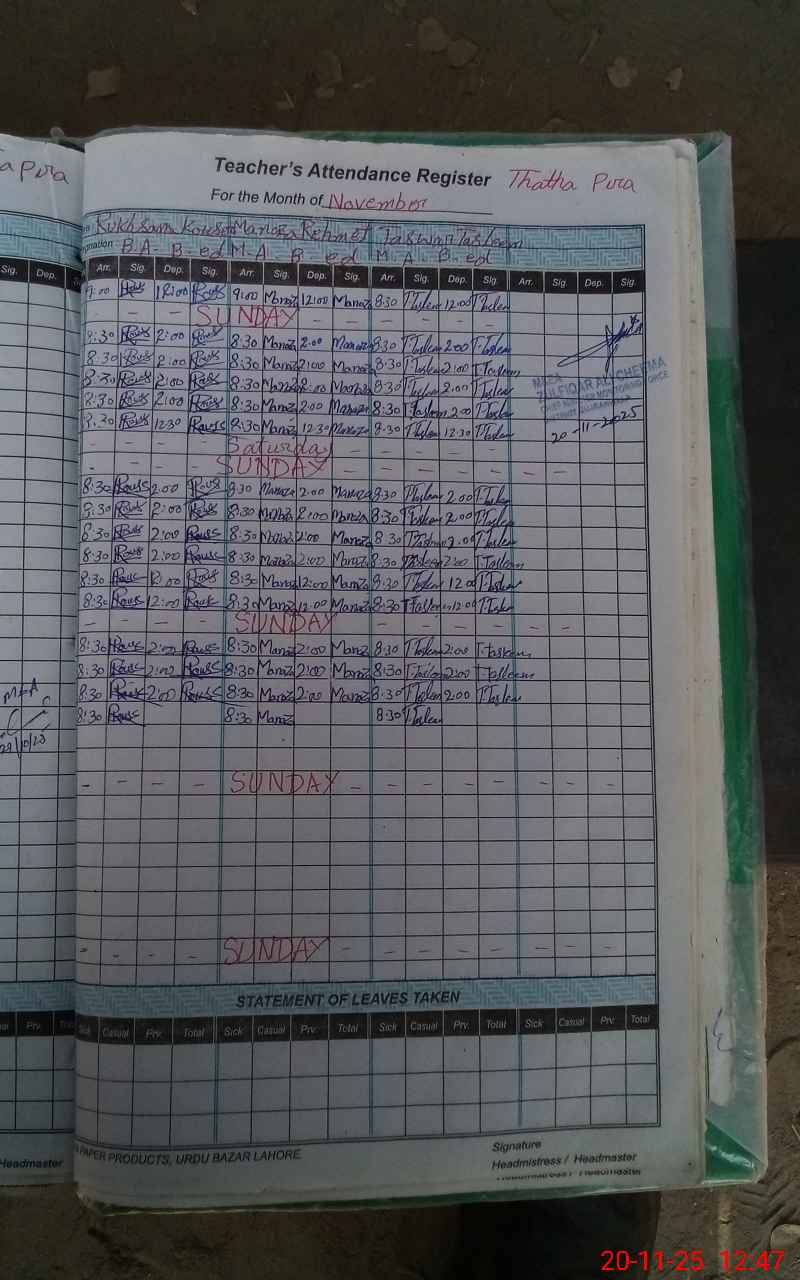 a Pira
Teacher's Attendance Register Thatha Pira
For the Month of November
Rukhsana Kousar Manaza Rehmat Taswar Tasleem
ignation B.A- B-ed M-A B-ed M.A. B-ed
Sig. Dep. Arr. Sig. Dep. Sig. Arr. Sig. Dep. Sig. Arr. Sig. Dep. Sig. Arr. Sig. Dep. Sig.
9:00 Rous 12:00 Rous 9:00 Manaz 12:00 Manaz 8:30 T.taslem 12:00 T.taslem
- - SUNDAY - - - - - -
8:30 Rous 2:00 Rous 8:30 Manaz 2:00 Manaz 8:30 T.taslem 2:00 T.taslem
8:30 Rous 2:00 Rous 8:30 Manaz 2:00 Manaz 8:30 T.taslem 2:00 T.Tasleem
8:30 Rous 2:00 Rous 8:30 Manaza 2:00 Manaza 8:30 T.taslem 2:00 T.taslem
8:30 Rous 2:00 Rous 8:30 Manaz 2:00 Manaza 8:30 Tasleem 2:00 T.taslem
8:30 Rous 12:30 Rous 8:30 Manaz 12:30 Manaza 8:30 T.taslem 12:30 T.taslem
MEA
ZULFIQAR ALI CHEEMA
20-11-2025
- - - - Saturday - - - - -
- - - - SUNDAY - - - - - -
8:30 Rous 2:00 Rous 8:30 Manaza 2:00 Manaza 8:30 T.taslem 2:00 T.taslem
8:30 Rous 2:00 Rous 8:30 Manaza 2:00 Manaza 8:30 T.taslem 2:00 T.taslem
8:30 Rous 2:00 Rous 8:30 Manaza 2:00 Manaz 8:30 T.taslem 2:00 T.taslem
8:30 Rous 2:00 Rous 8:30 Manaza 2:00 Manaz 8:30 Tasleem 2:00 T.Tasleem
8:30 Rous 12:00 Rous 8:30 Manaz 12:00 Manaz 8:30 T.taslem 12:00 T.taslem
8:30 Rous 12:00 Rous 8:30 Manaz 12:00 Manaz 8:30 T.Tasleem 12:00 T.taslem
- - - - SUNDAY - - - - -
8:30 Rous 2:00 Rous 8:30 Manaz 2:00 Manaz 8:30 T.taslem 2:00 T.tasleem
8:30 Rous 2:00 Rous 8:30 Manaz 2:00 Manaz 8:30 T.taslem 2:00 T.tasleem
8:30 Rous 2:00 Rous 8:30 Manaz 2:00 Manaz 8:30 T.taslem 2:00 T.taslem
8:30 Rous 8:30 Manaz 8:30 T.taslem
MEA
29/10/25
- - - - SUNDAY - - - - - - - -
- - - - SUNDAY - - - - - - - -
STATEMENT OF LEAVES TAKEN
Sick Casual Prv. Total Sick Casual Prv. Total Sick Casual Prv. Total Sick Casual Prv. Total
PAPER PRODUCTS, URDU BAZAR LAHORE
Signature
Headmaster Headmistress / Headmaster
20-11-25 12:47